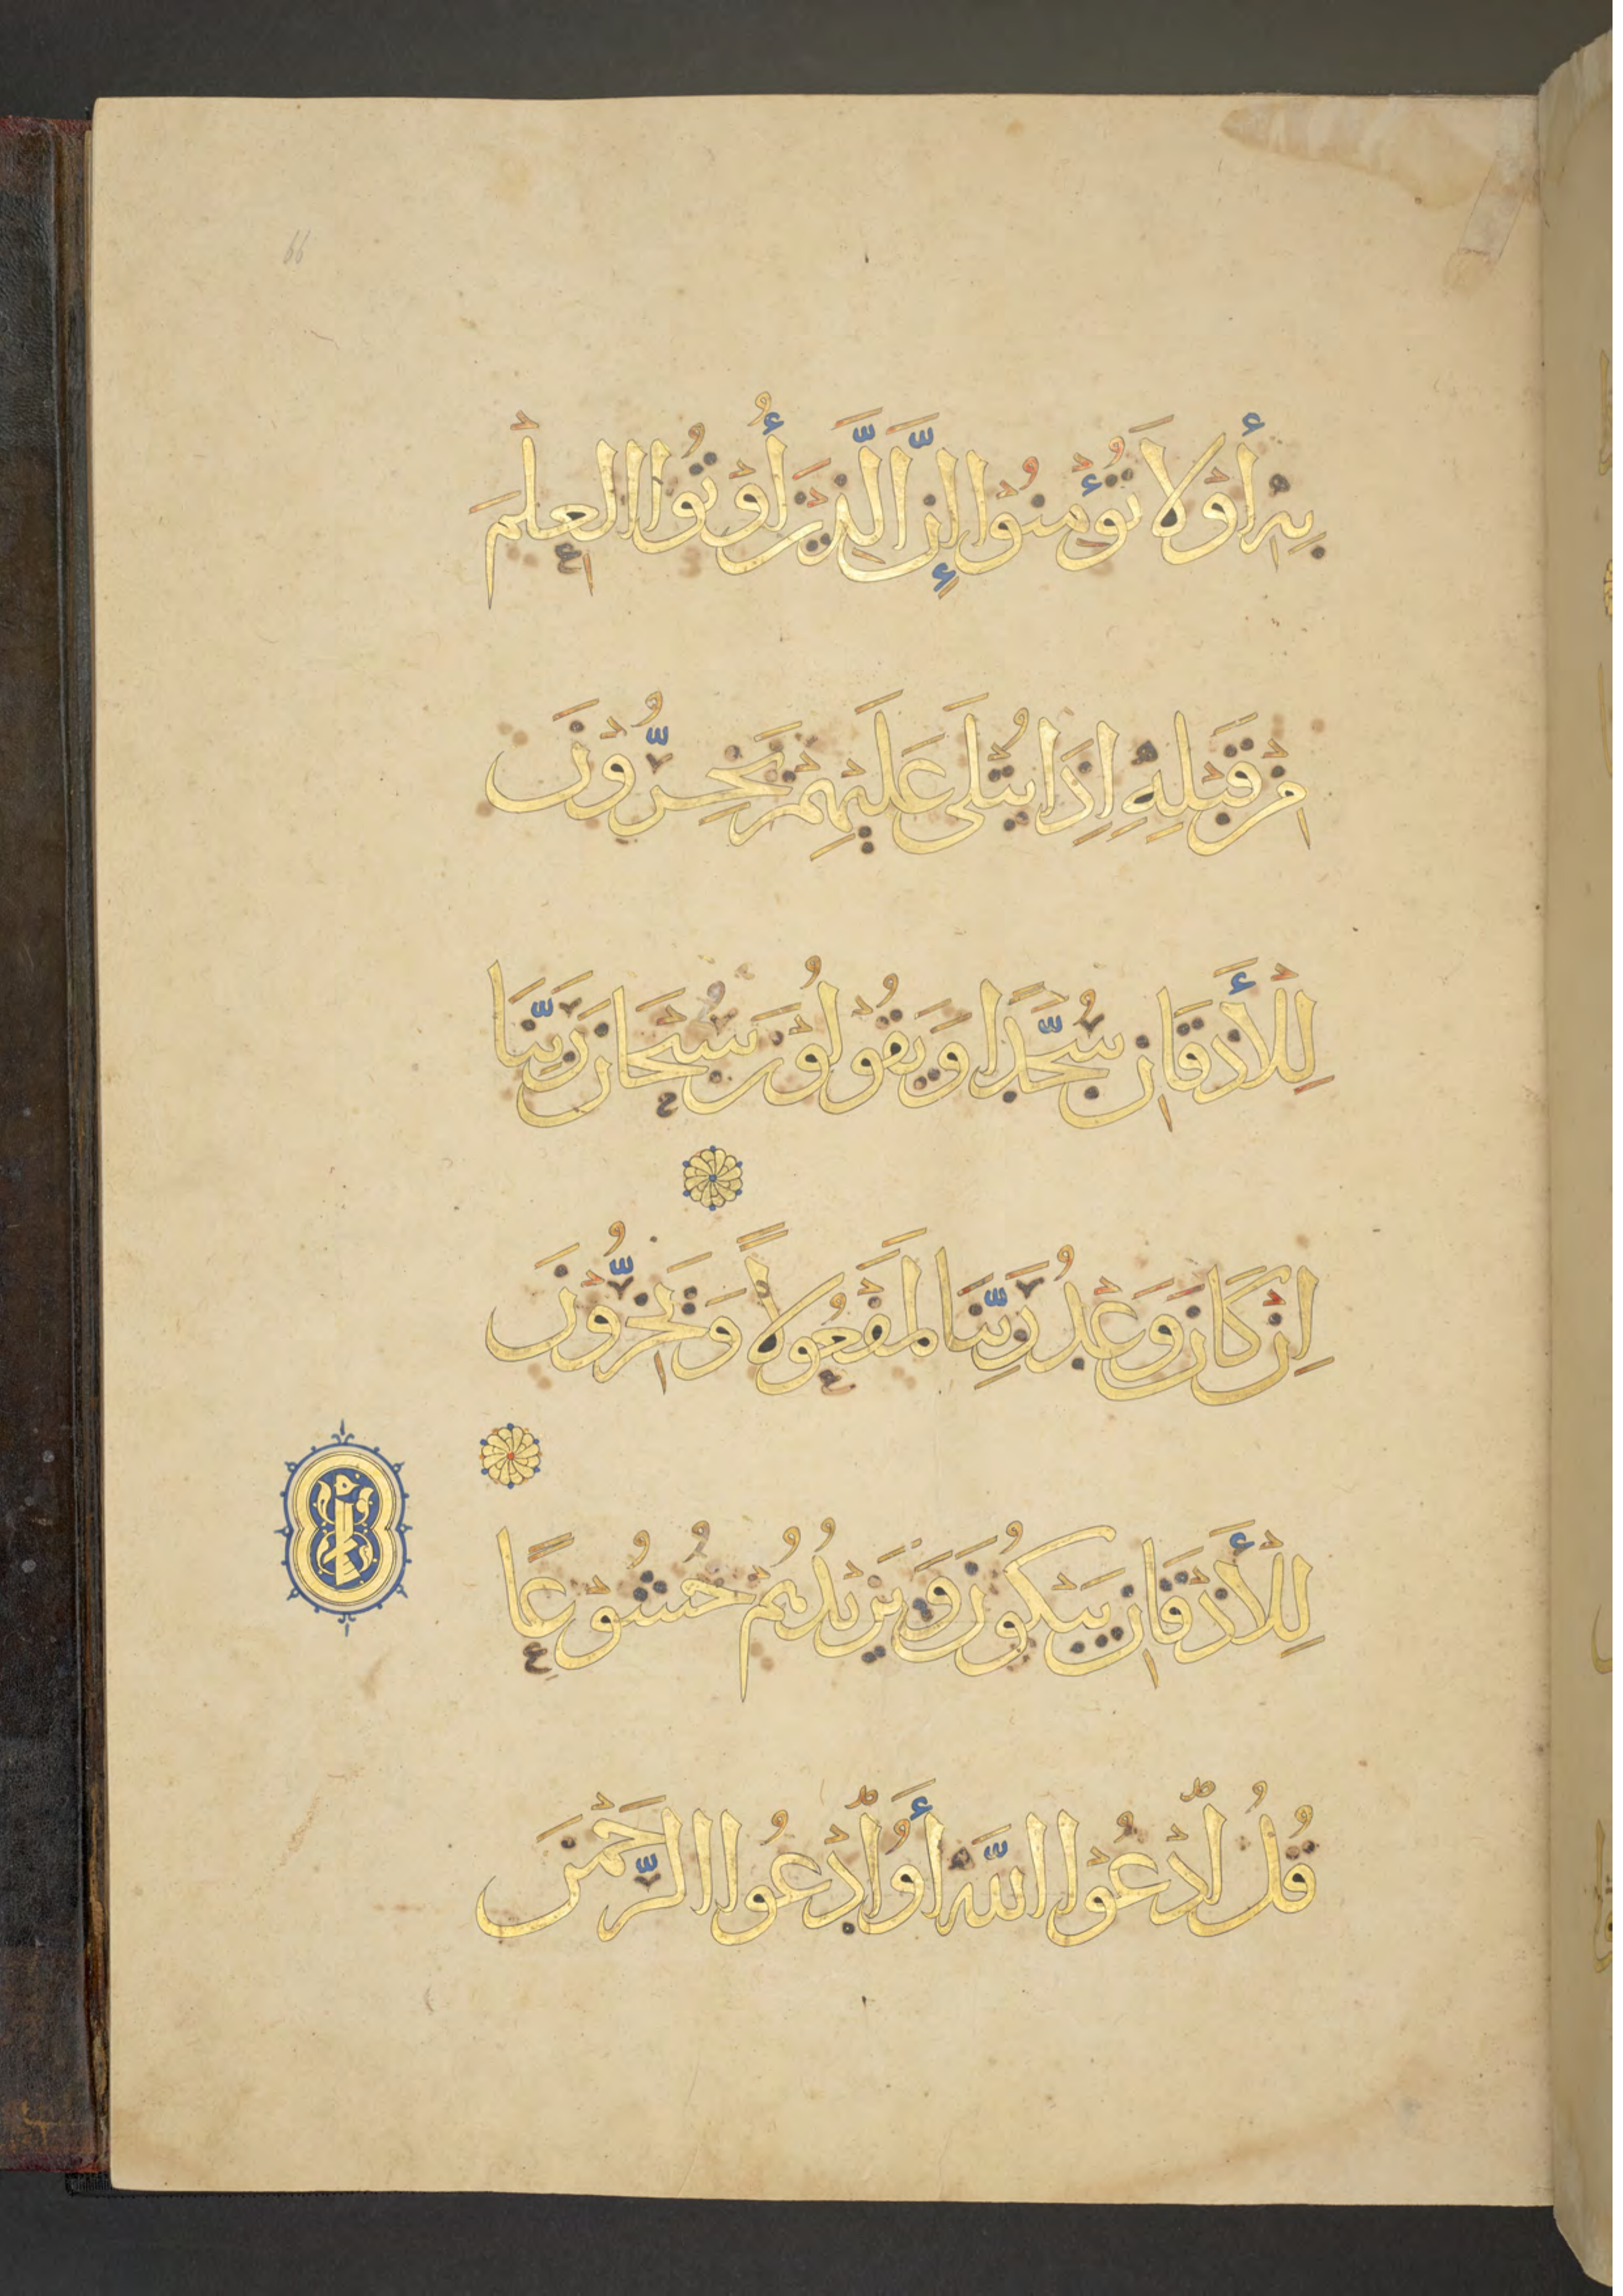 66
بِهِ أَوْ لَا تُؤْمِنُوْا إِنَّ الَّذِيْنَ أُوْتُوا الْعِلْمَ
مِنْ قَبْلِهِ اِذَا يُتْلَى عَلَيْهِمْ يَخِرُّوْنَ
لِلْأَذْقَانِ سُجَّدًا وَيَقُوْلُوْنَ سُبْحَانَ رَبِّنَا
اِنْ كَانَ وَعْدُ رَبِّنَا لَمَفْعُولًا وَيَخِرُّوْنَ
لِلْأَذْقَانِ يَبْكُونَ وَيَزِيْدُهُمْ خُشُوْعًا
قُلُ ادْعُوْا اللَّهَ أَوُ ادْعُوا الرَّحْمٰنَ